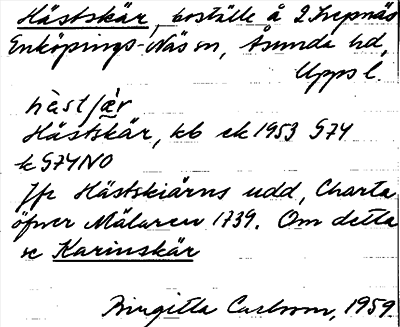 Hästskär, boställe å 2 Trepnäs
Enköpings-Näs sn, Åsunda hd,
Upps l.
hàstʃæ̀r
Hästskär, kb ek 1953 974
k 974NO
Jfr Hästskiärns udd, Charta
öfver Mälaren 1739. Om detta
se Karinskär
Birgitta Carlsson, 1959